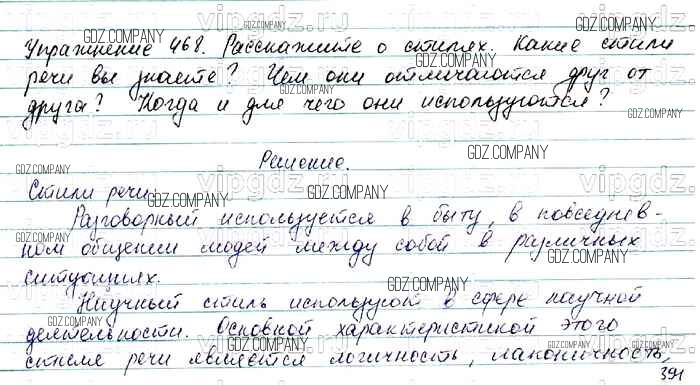 Упражнение 468. Расскажите о стилях. Какие стили
речи вы знаете? Чем они отличаются друг от
друга? Когда и для чего они используются?
Решение.
Стили речи:
Разговорный используется в быту, в повседнев-
ном общении людей между собой в различных
ситуациях.
Научный стиль используют в сфере научной
деятельности. Основной характеристикой этого
стиля речи является логичность, лаконичность,
391
GDZ.COMPANY
vipgdz.ru